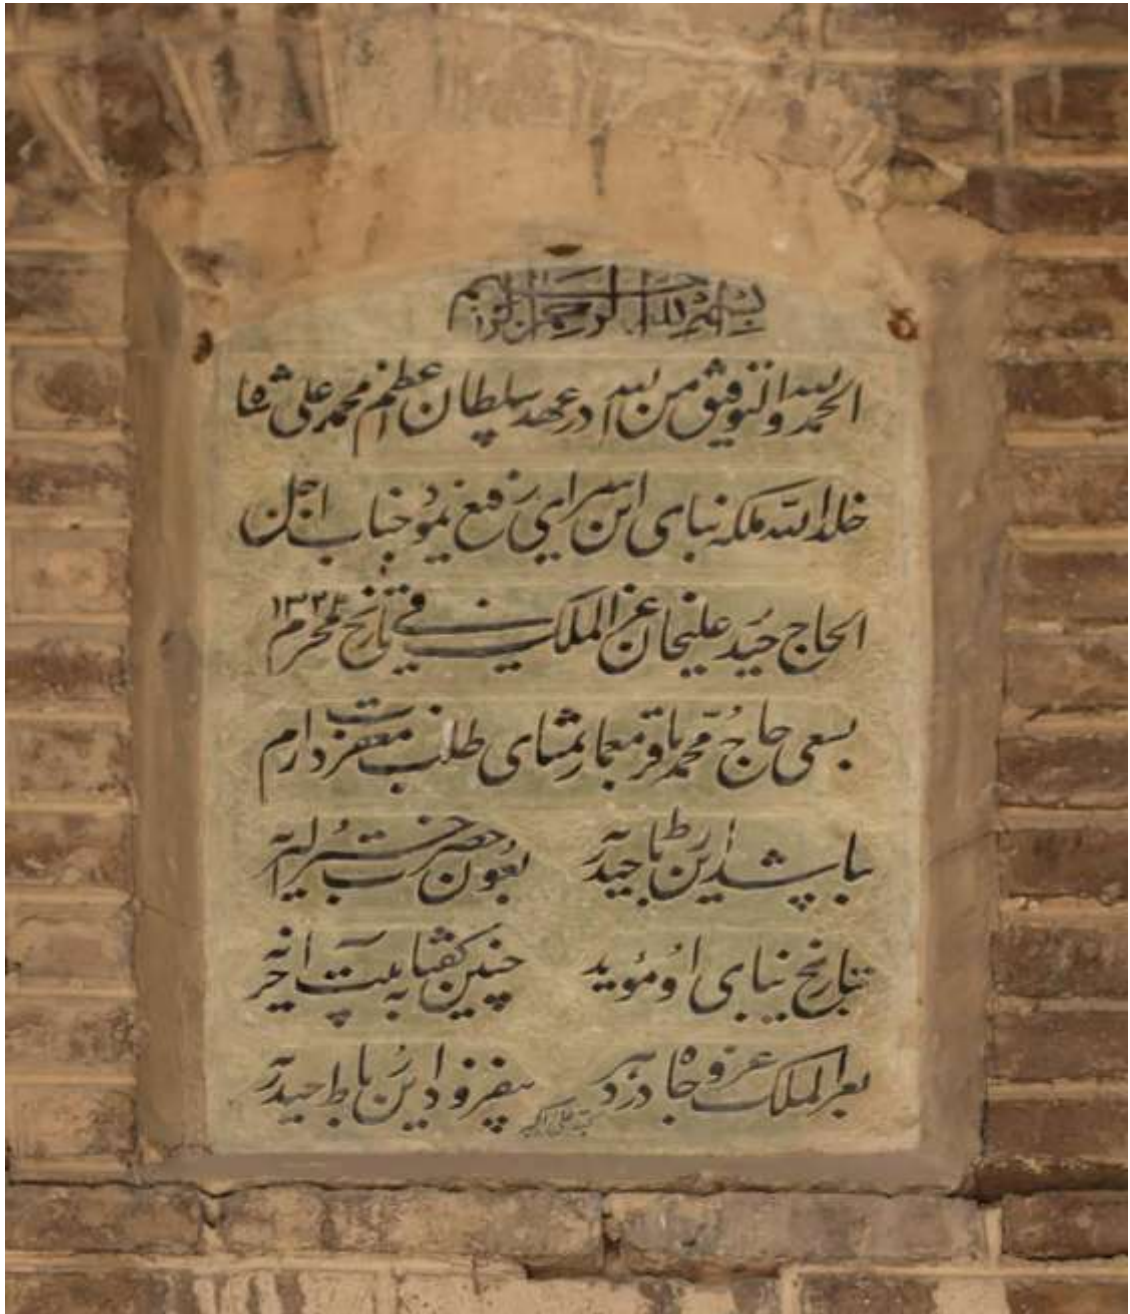 بسم الله الرحمن الرحیم
الحمد لله والتوفیق من الله در عهد سلطان اعظم محمد علی شاه
خلد الله ملکه بنای این سرای رفیع نمود جناب اجل
الحاج حیدر علیخان عز الملک فی تاریخ محرم ۱۳۲۶
بسعی حاج محمد باقر معمار تمنای طلب مغفرت دارم
بپا شد این رباط حیدریه بعون حضرت خیر البریه
بتاریخ بنای او مؤید چنین گفتا به بیت اخریه
بعز الملک عز و جاه در دهر بیفزود این رباط حیدریه
کتبه علی اکبر